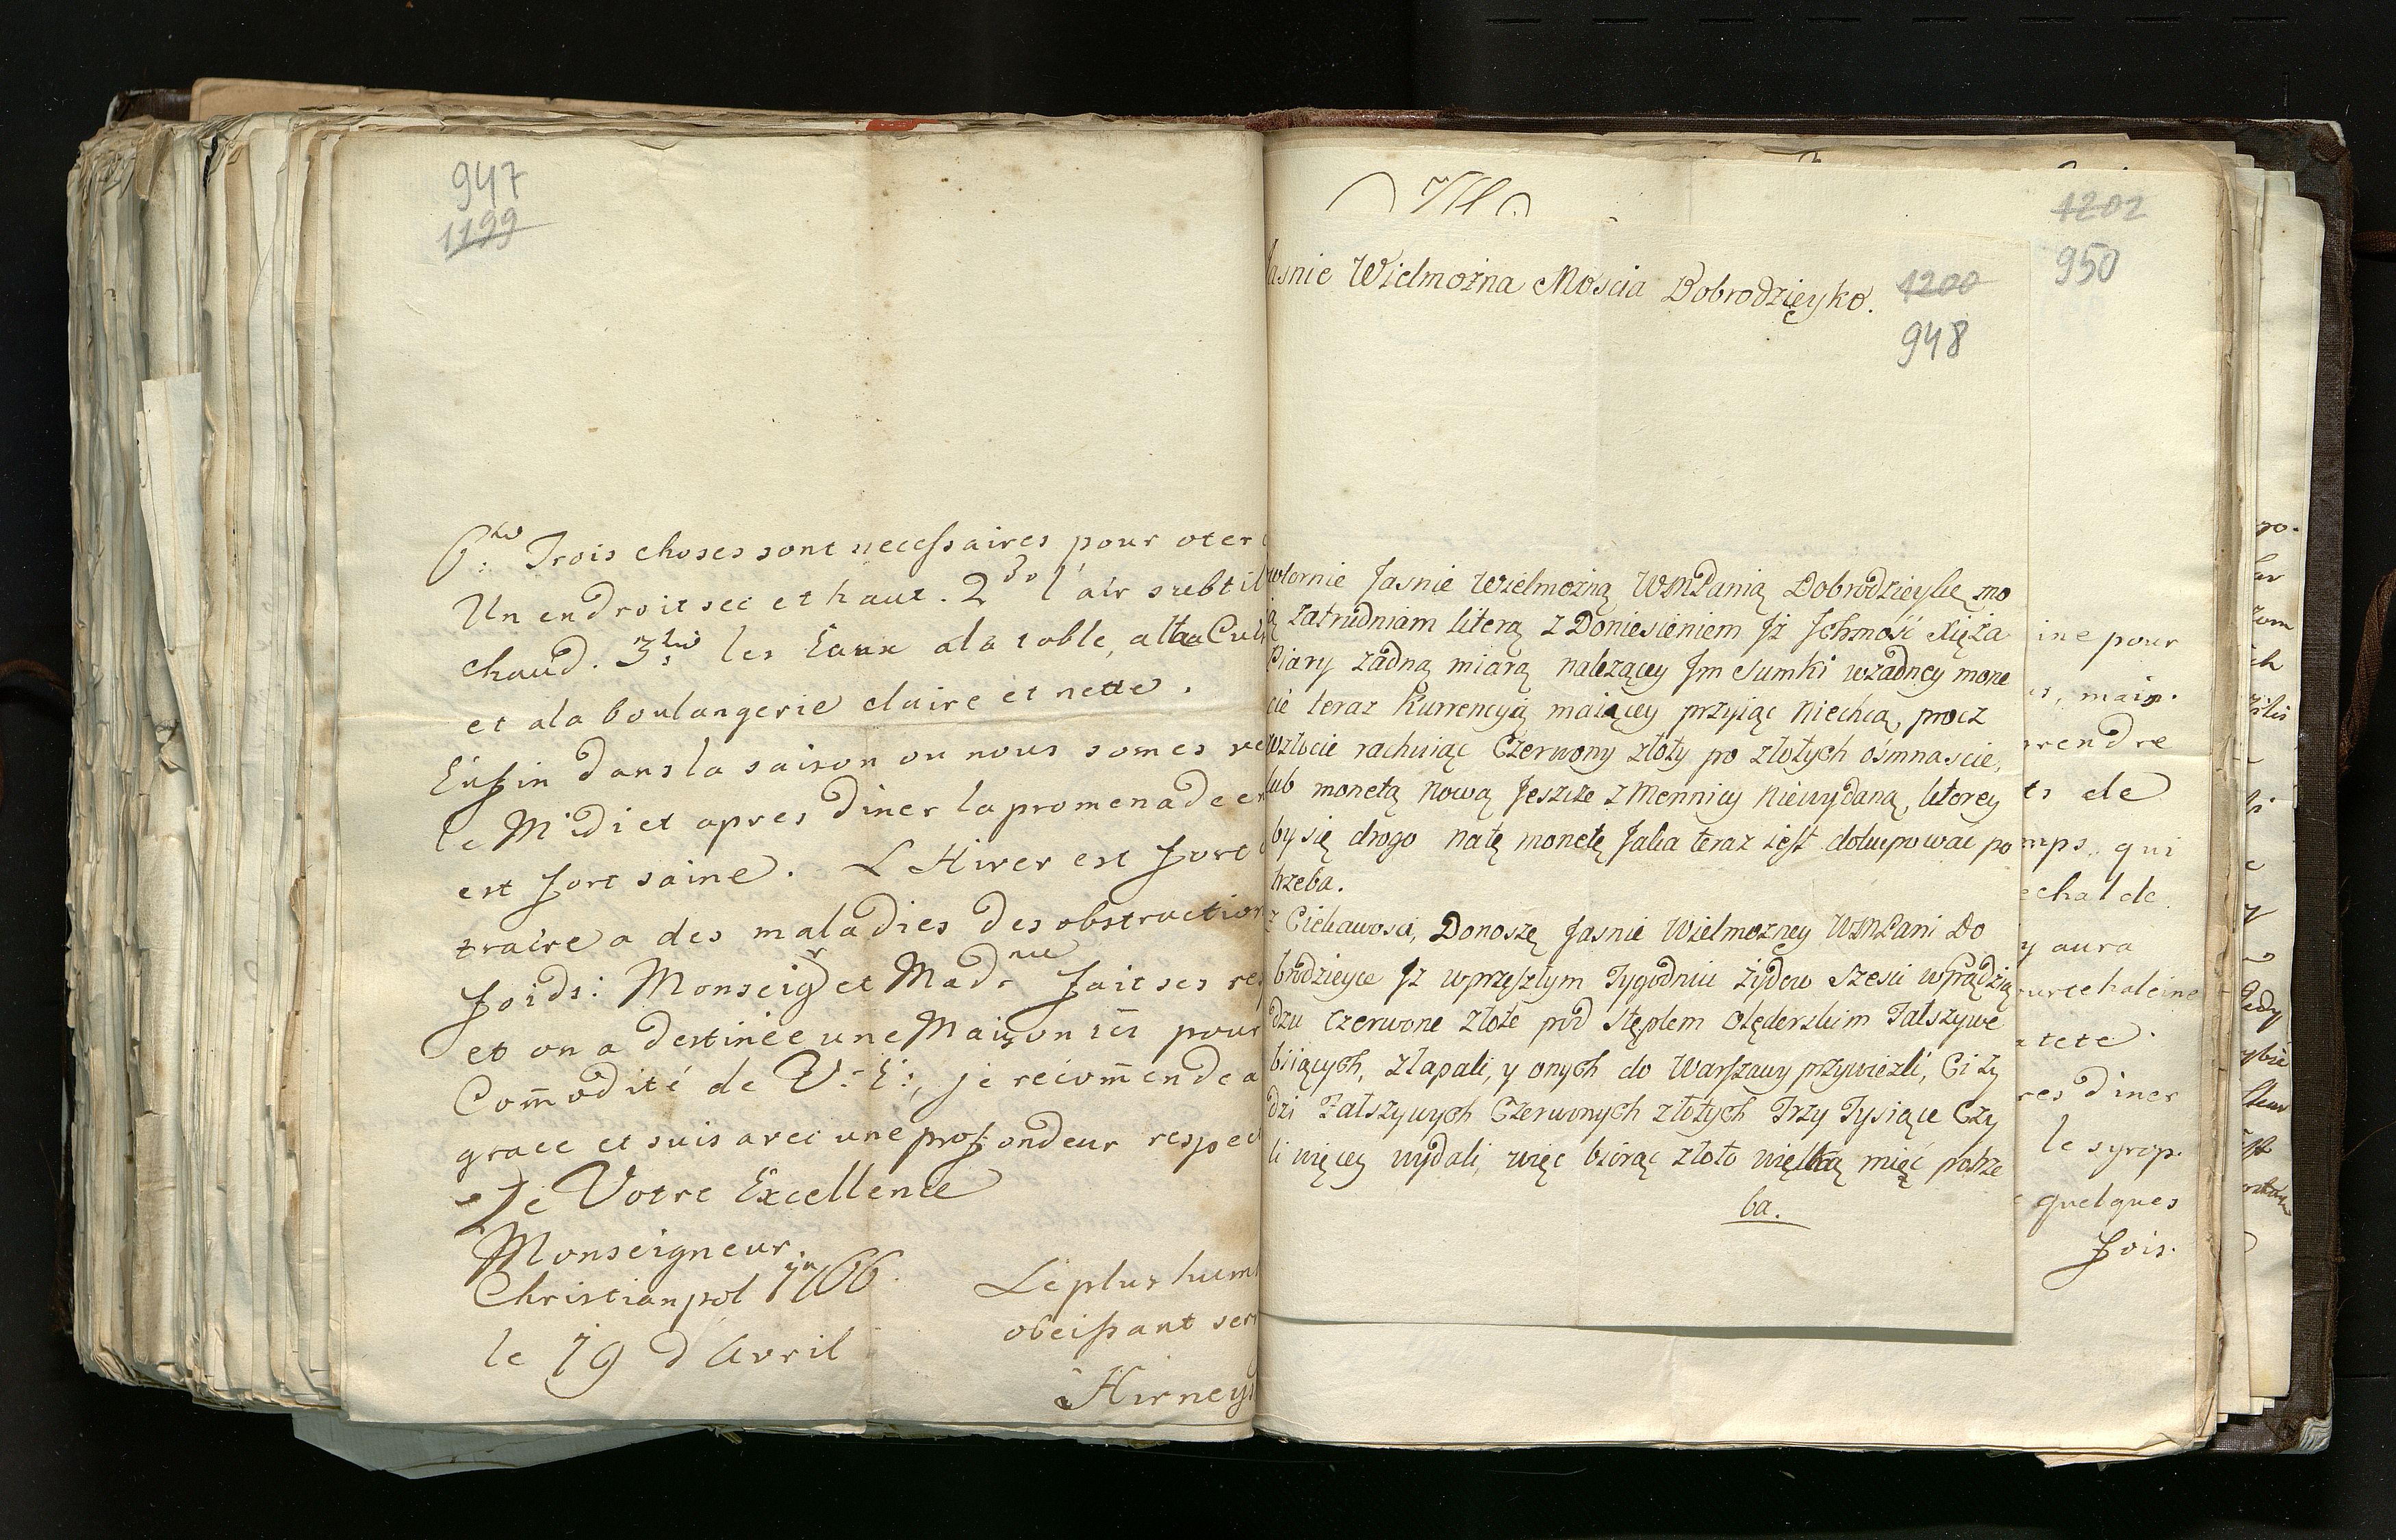 947
1199
6to: Trois choses sont necessaires pour oter
Un endroit sec et haut. 2do l'air subtil
chaud. 3tio: les Eaux a la table, a la
et a la boulangerie claire et nette.
Enfin dans la saison ou nous somes
le Midi et apres diner la promenade
est fort saine. L'Hiver est fort
traire a des maladies des obstruction
foids: Monseigr et Madme fait ses
et on a destinée une Maison ici pour
Com̄odité de V: E:, je recom̄ende a
grace et suis avec une profondeur respec
De Votre Excellence
Monseigneur.
Christianpol in 1766.
le 19 d'Avril
Le plus hum
obeissant ser
Hirney
Jasnie Wielmożna Mościa Dobrodzięyko.
1200
948
wtornie Jasnie Wielmożną WMPanią Dobrodzieykę mo
ią zatrudniam literą z Doniesieniem Jż Jchmość Xięża
Piary żadną miarą należącey Jm Sumki wżadney mone
cie teraz Kurrencyią maiącey przyiąc niechcą, procz
wzłocie rachuiąc Czerwony złoty po złotych ośmnascie,
lub monetą nową Jeszcze z Mennicy niewydaną, ktorey
by się drogo natę monetę Jaka teraz iest dokupowac po
trzeba.
z Ciekawosci, Donoszę Jasnie Wielmożney WMPani Do
brodzieyce Jż wprzeszłym Tygodniu Żydow Szesci wPrądzią
dzu czerwone złote pod stęplem Olęderskim Fałszywe
biiących, złapali, y onych do Warszawy przywiezli, Ci Ży
dzi Fałszywych Czerwonych złotych Trzy Tysiące Czy
li więcey wydali, więc biorąc złoto więlką mięć potrze
ba.
1202
950
ine pour
s, mais.
rendre
ts de
mps, qui
echal de
y aura
courte haleine
a tete.
res diner
le syrop.
quelques
fois.